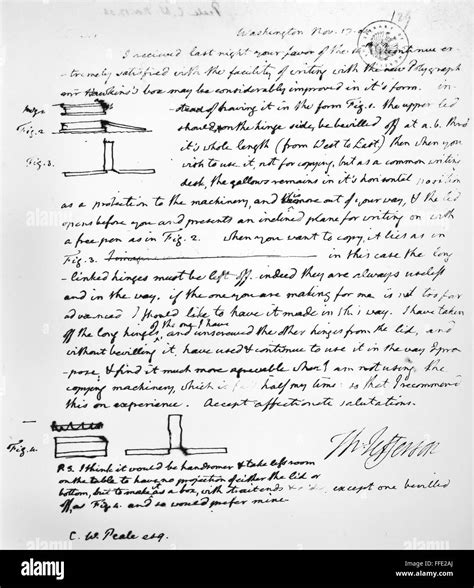 Peale C. W. Nov. 17. 05
129
Washington Nov. 17.
I recieved last night your favor of the continue ex-
-tremely satisfied with the facility of writing with the new Polygraph
Hawkins's box may be considerably improved in it's form. in-
Fig. 1. -stead of having it in the form Fig. 1. the upper lid
Fig. 2. should on the hinge side, be bevilled off at a.b. thro'
it's whole length (from West to East) then when you
Fig. 3. wish to use it, not for copying, but as a common writing
desk, the gallows remains in it's horizontal position
as a protection to the machinery, and is more out of your way, & the lid
opens before you and presents an inclined plane for writing on with
a free pen as in Fig. 2. when you want to copy it lies as in
Fig. 3. in this case the long
-linked hinges must be left off. indeed they are always useless
and in the way. if the one you are making for me is not too far
advanced I should like to have it made in this way. I have taken
off the long hinges of the one I have and unscrewed the other hinges from the lid, and
without bevilling it, have used & continue to use it in the way I pro-
pose, & find it much more agreeable when I am not using the
copying machinery, which is half my time: so that I recommend
this on experience. Accept affectionate salutations.
Fig. 4.
Th: Jefferson
P.S. I think it would be handsomer & take less room
on the table to have no projection of either the lid or
bottom, but to make as a box, with strait ends & sides, except one bevilled
off as Fig. 4. and so would prefer mine
C. W. Peale esq.
alamy
alamy
Image ID: FFE2AJ
www.alamy.com